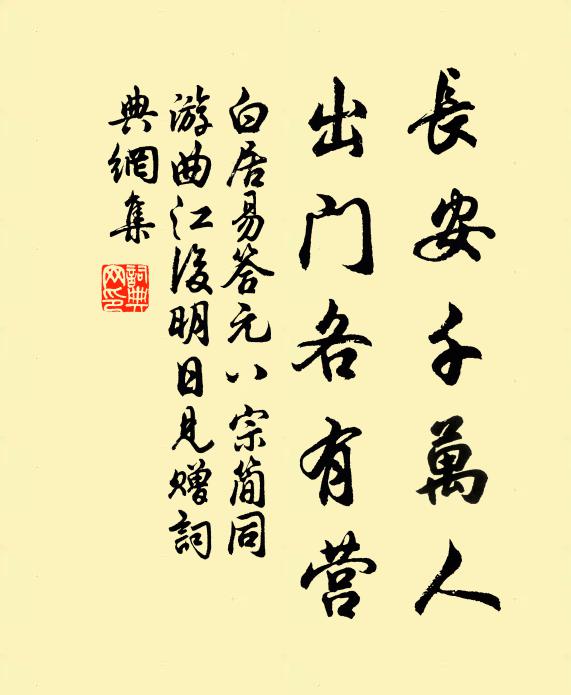 長安千萬人
出门各有营
白居易答元八宗简同
游曲江後明日見赠詞
典網集
詞典网印